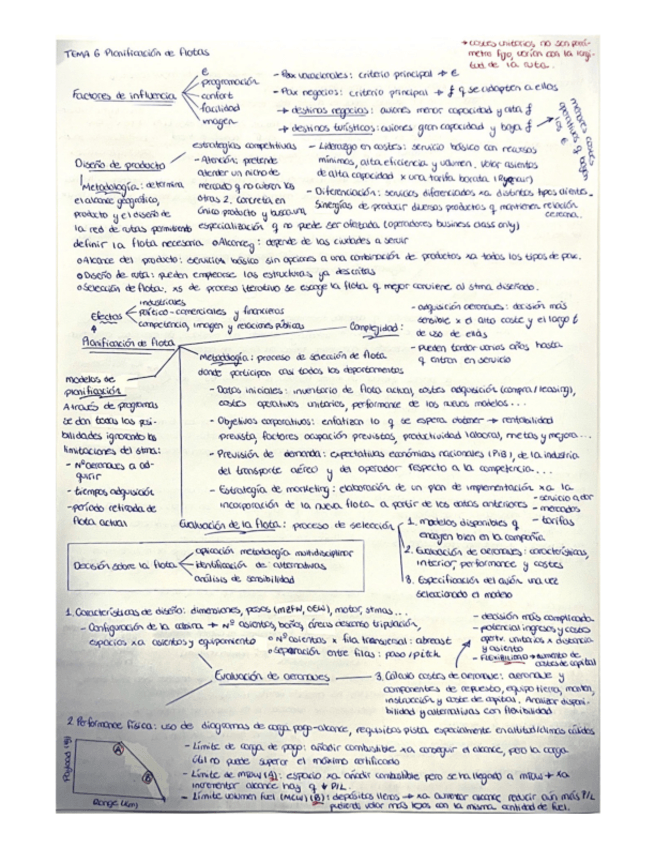 TEMA 6 Planificación de flotas
→ costes unitarios no son pará-
metro fijo, varían con la longi-
tud de la ruta.
Factores de influencia
€
programación
confort
facilidad
imagen
- Pax vacacionales: criterio principal → €
- Pax negocios: criterio principal → f q se adapten a ellos
→ destinos negocios: aviones menor capacidad y alta f
→ destinos turísticos: aviones gran capacidad y baja f
menores costes
operativos q bajan
los €
Diseño de producto
estrategias competitivas
- Liderazgo en costes: servicio básico con recursos
mínimos, alta eficiencia y volumen. Volar asientos
de alta capacidad x una tarifa barata (Ryanair)
- Diferenciación: servicios diferenciados xa distintos tipos clientes.
Sinergias de producir diversos productos q mantienen relación
cercana.
- Atención: pretende
atender un nicho de
mercado q no cubren las
otras 2. Concreta en
único producto y busca una
especialización q no puede ser ofertada (operadores business class only)
Metodología: determina
el alcance geográfico,
producto y el diseño de
la red de rutas permitiendo
definir la flota necesaria
o Alcance g: depende de las ciudades a servir
o Alcance del producto: servicios básico sin opciones a una combinación de productos xa todos los tipos de pax.
o Diseño de ruta: pueden emplearse las estructuras ya descritas
o Selección de flota: xs de proceso iterativo se escoge la flota q mejor conviene al stma diseñado.
Efectos
industriales
político-comerciales y financieros
competencia, imagen y relaciones públicas
Complejidad:
- adquisición aeronaves: decisión más
sensible x el alto coste y el largo t
de uso de ellas
- pueden tardar varios años hasta
q entran en servicio
Planificación de flota
Metodología: proceso de selección de flota
donde participan casi todos los departamentos
- Datos iniciales: inventario de flota actual, costes adquisición (compra/leasing),
costes operativos unitarios, performance de los nuevos modelos...
- Objetivos corporativos: enfatizan lo q se espera obtener → rentabilidad
prevista, factores ocupación previstos, productividad laboral, metas y mejora...
- Previsión de demanda: expectativas económicas nacionales (PIB), de la industria
del transporte aéreo y del operador respecto a la competencia...
- Estrategia de marketing: elaboración de un plan de implementación xa la
incorporación de la nueva flota a partir de los datos anteriores
- servicio a dar
- mercados
- tarifas
modelos de
planificación
A través de programas
se dan todas las posi-
bilidades ignorando las
limitaciones del stma:
- Nº aeronaves a ad-
quirir
- tiempos adquisición
- periodo retirada de
flota actual
Evaluación de la flota: proceso de selección
1. modelos disponibles q
encajen bien en la compañía
2. Evaluación de aeronaves: características,
interior, performance y costes
3. Especificación del avión una vez
seleccionado el modelo
Decisión sobre la flota
aplicación metodología multidisciplinar
identificación de alternativas
análisis de sensibilidad
1. Características de diseño: dimensiones, pesos (MZFW, OEW), motor, stmas...
- Configuración de la cabina → Nº asientos, baños, áreas descanso tripulación,
espacios xa asientos y equipamiento
o Nº asientos x fila transversal: abreast
o Separación entre filas: paso/pitch
- decisión más complicada
- potencial ingresos y costes
opertv. unitarios x distancia
y asiento
- FLEXIBILIDAD → aumento de
costes de capital
Evaluación de aeronaves
3. Cálculo costes de aeronave: aeronave y
componentes de repuesto, equipo tierra, manten,
instrucción y coste de capital. Analizar disponi-
bilidad y alternativas con flexibilidad.
2. Performance física: uso de diagramas de carga pago-alcance, requisitos pista especialmente en altitud/climas cálidos
Payload (kg)
A
B
Range (km)
- Límite de carga de pago: añadir combustible xa conseguir el alcance, pero la carga
útil no puede superar el máximo certificado
- Límite de MTOW (A): espacio xa añadir combustible pero se ha llegado a MTOW → xa
incrementar alcance hay q ↓ P/L.
- Límite volumen fuel (MLW) (B): depósitos llenos → xa aumentar alcance reducir aún más P/L
pudiendo volar más lejos con la misma cantidad de fuel.